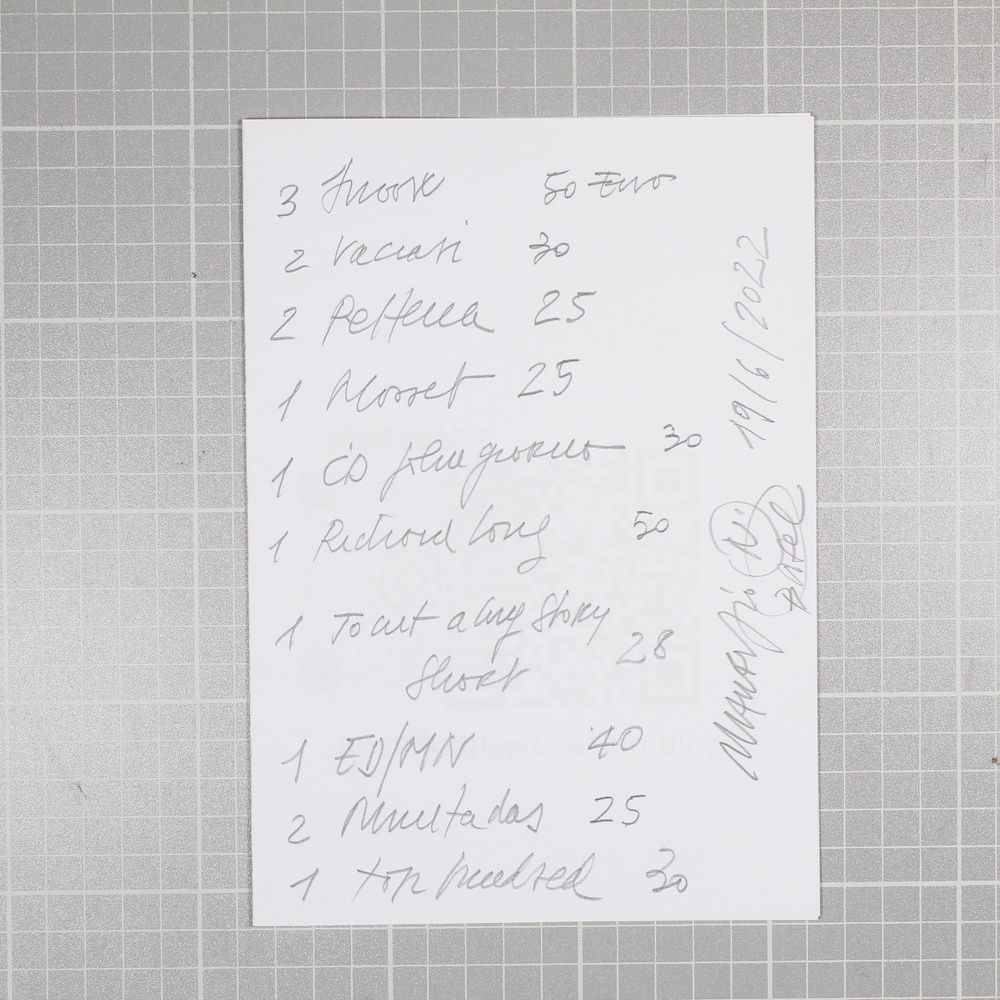 3 50 Euro
2 Vaccari 30
2 Pettena 25
1 Mosset 25
1 CD John Giorno 30
1 Richard Long 50
1 To cut a long Story
Short 28
1 ED/MN 40
2 Muntadas 25
1 top hundred 30
19/6/2022